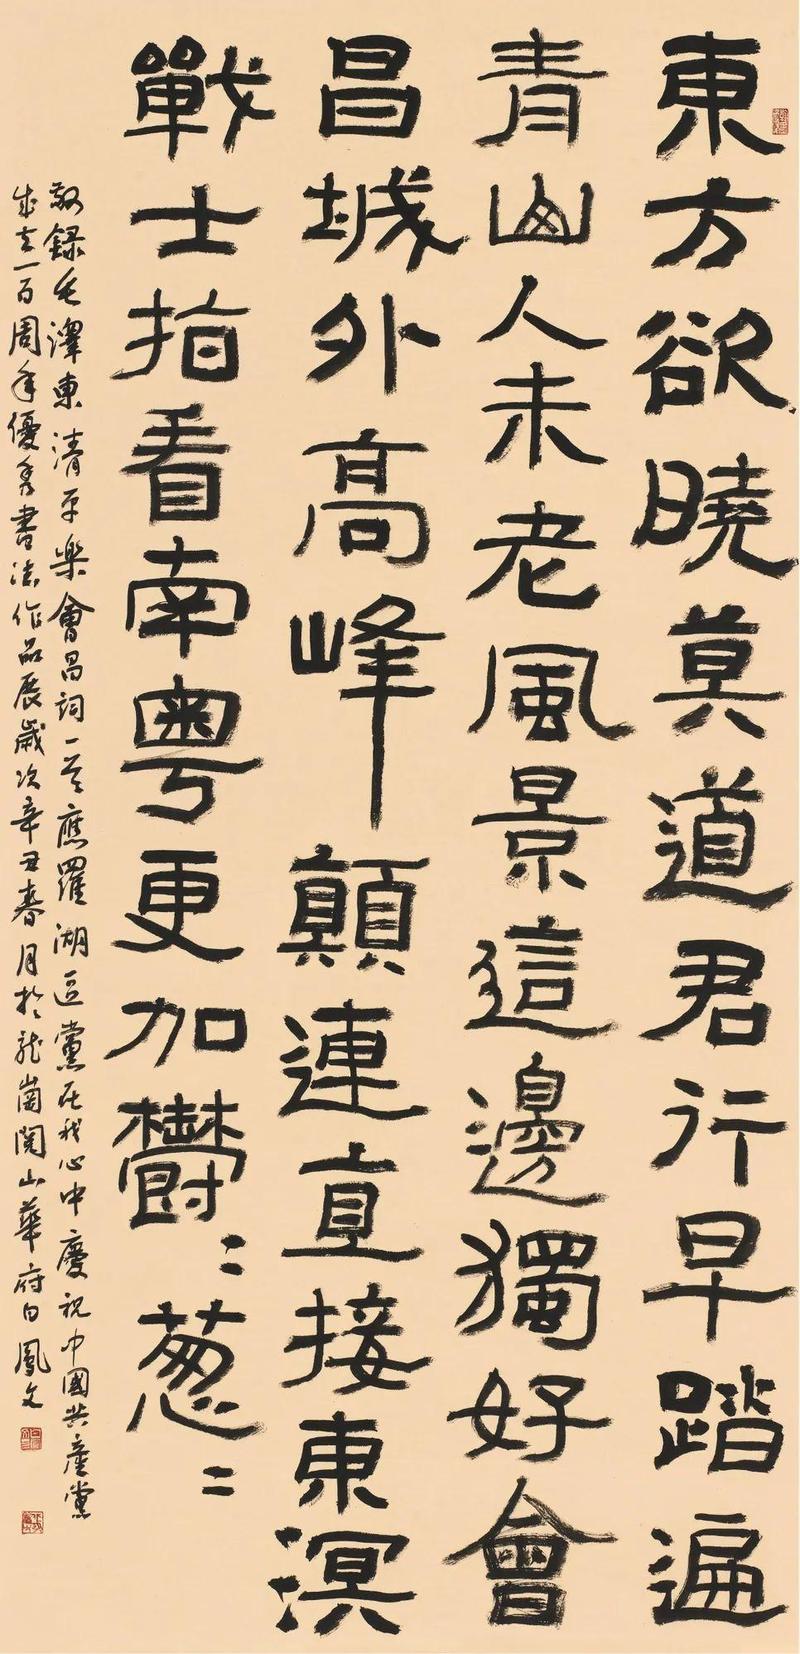 東方欲曉莫道君行早踏遍
青山人未老風景這邊獨好會
昌城外高峰顛連直接東溟
戰士指看南粵更加鬱〻葱〻
敬錄毛澤東清平樂會昌詞一首應羅湖區黨在我心中慶祝中國共產黨
成立一百周年優秀書法作品展歲次辛丑春月於龍崗闅山華府白鳳文